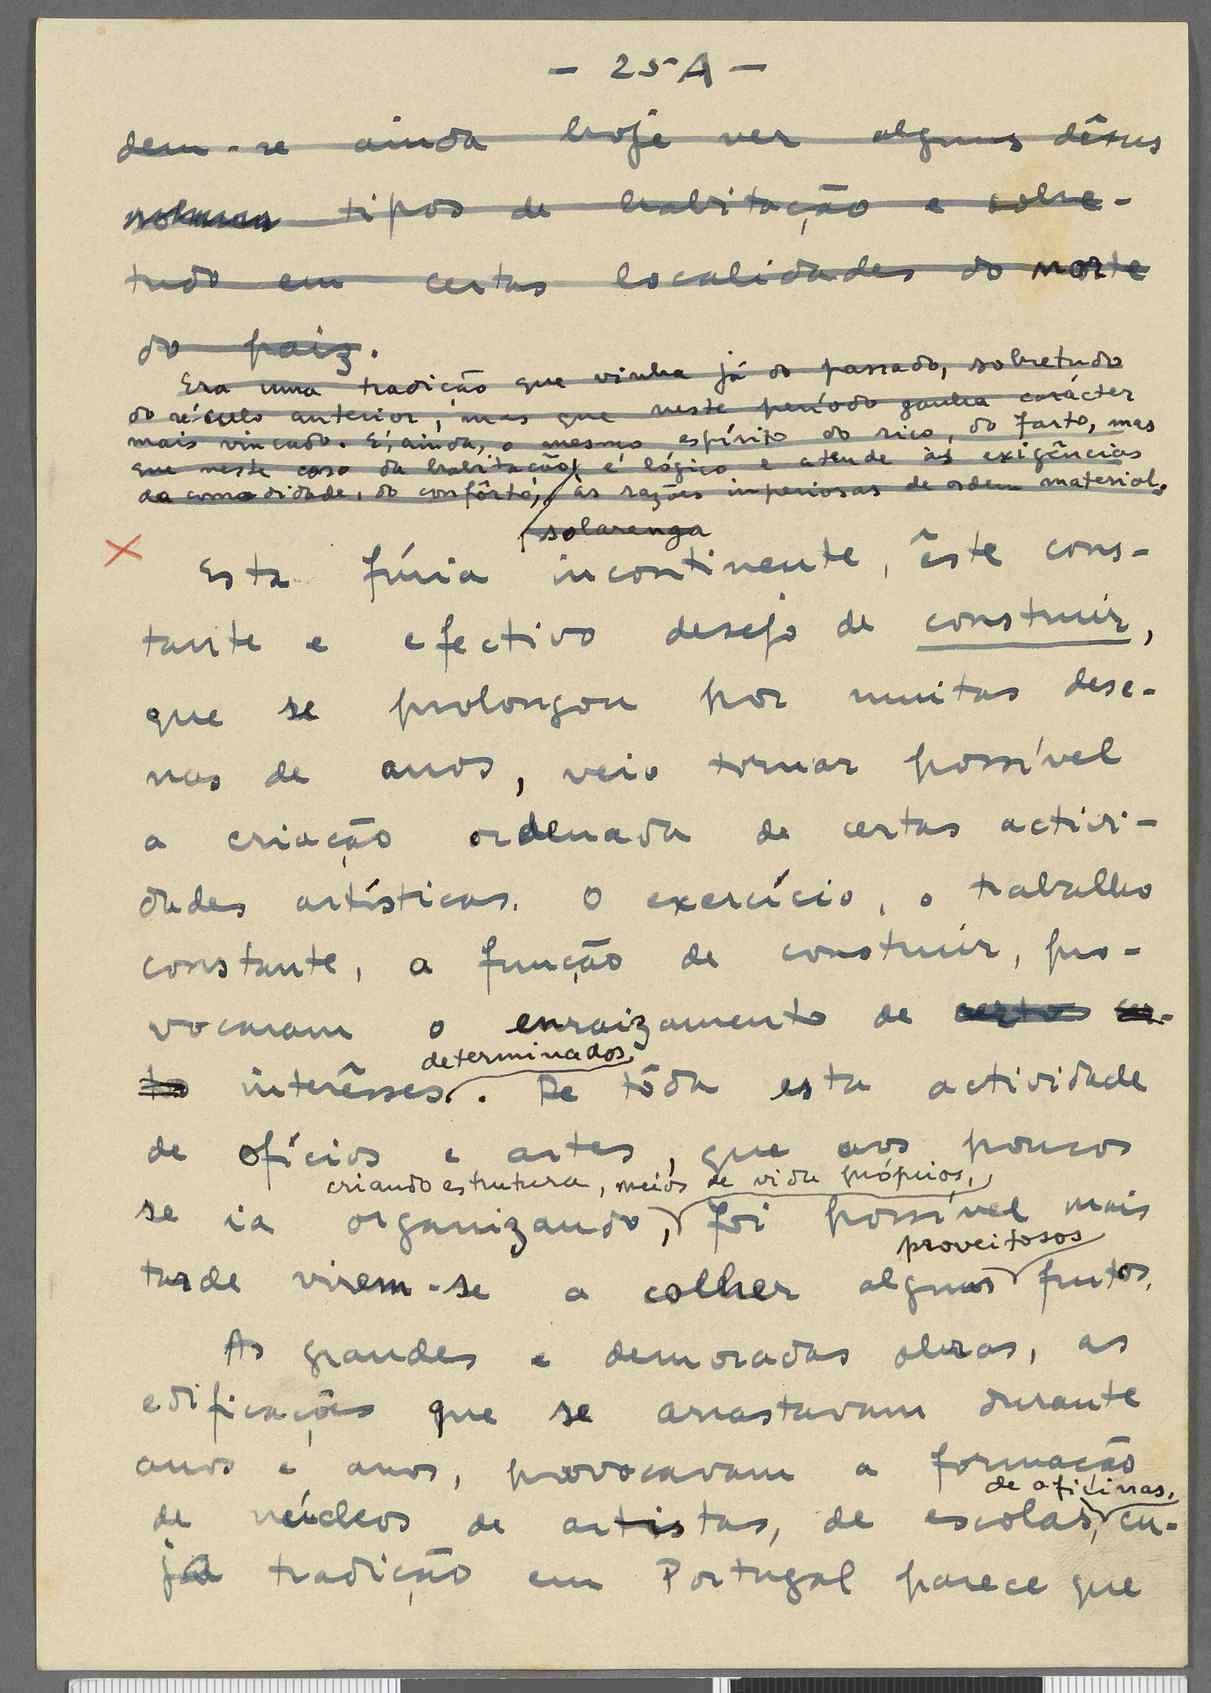 — 25A —
dem-se ainda hoje ver alguns dêsses
tipos de habitação e sobre-
tudo em certas localidades do norte
do paiz.
Era uma tradição que vinha já do passado, sobretudo
do século anterior, mas que neste período ganha carácter
mais vincado. E, ainda, o mesmo espírito do rico, do farto, mas
que neste caso da habitação é lógico e atende às exigências
da comodidade, do confôrto, às razões imperiosas de ordem material.
solarenga
× Esta fúria incontinente, êste cons-
tante e efectivo desejo de construir,
que se prolongou por muitas deze-
nas de anos, veio tornar possível
a criação ordenada de certas activi-
dades artísticas. O exercício, o trabalho
constante, a função de construir, pro-
vocaram o enraizamento de certos cer-
to interêsses. De tôda esta actividade
determinados
de ofícios e artes, que aos poucos
criando estrutura, meios de vida próprios,
se ia organizando, foi possível mais
proveitosos
tarde virem-se a colher alguns frutos.
As grandes e demoradas obras, as
edificações que se arrastavam durante
anos e anos, provocavam a formação
de oficinas,
de núcleos de artistas, de escolas, cu-
ja tradição em Portugal parece que